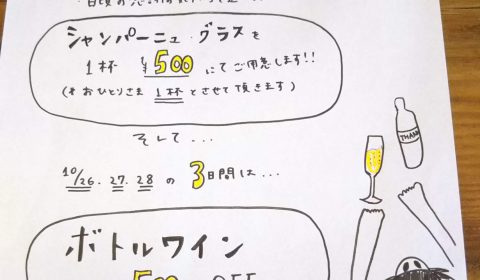 シャンパーニュ・グラスを
1杯 ¥500 にてご用意します!!
(※おひとりさま 1杯とさせて頂きます)
そして...
10/26.27.28 の 3日間は...
ボトルワイン
500 OFF
THANK